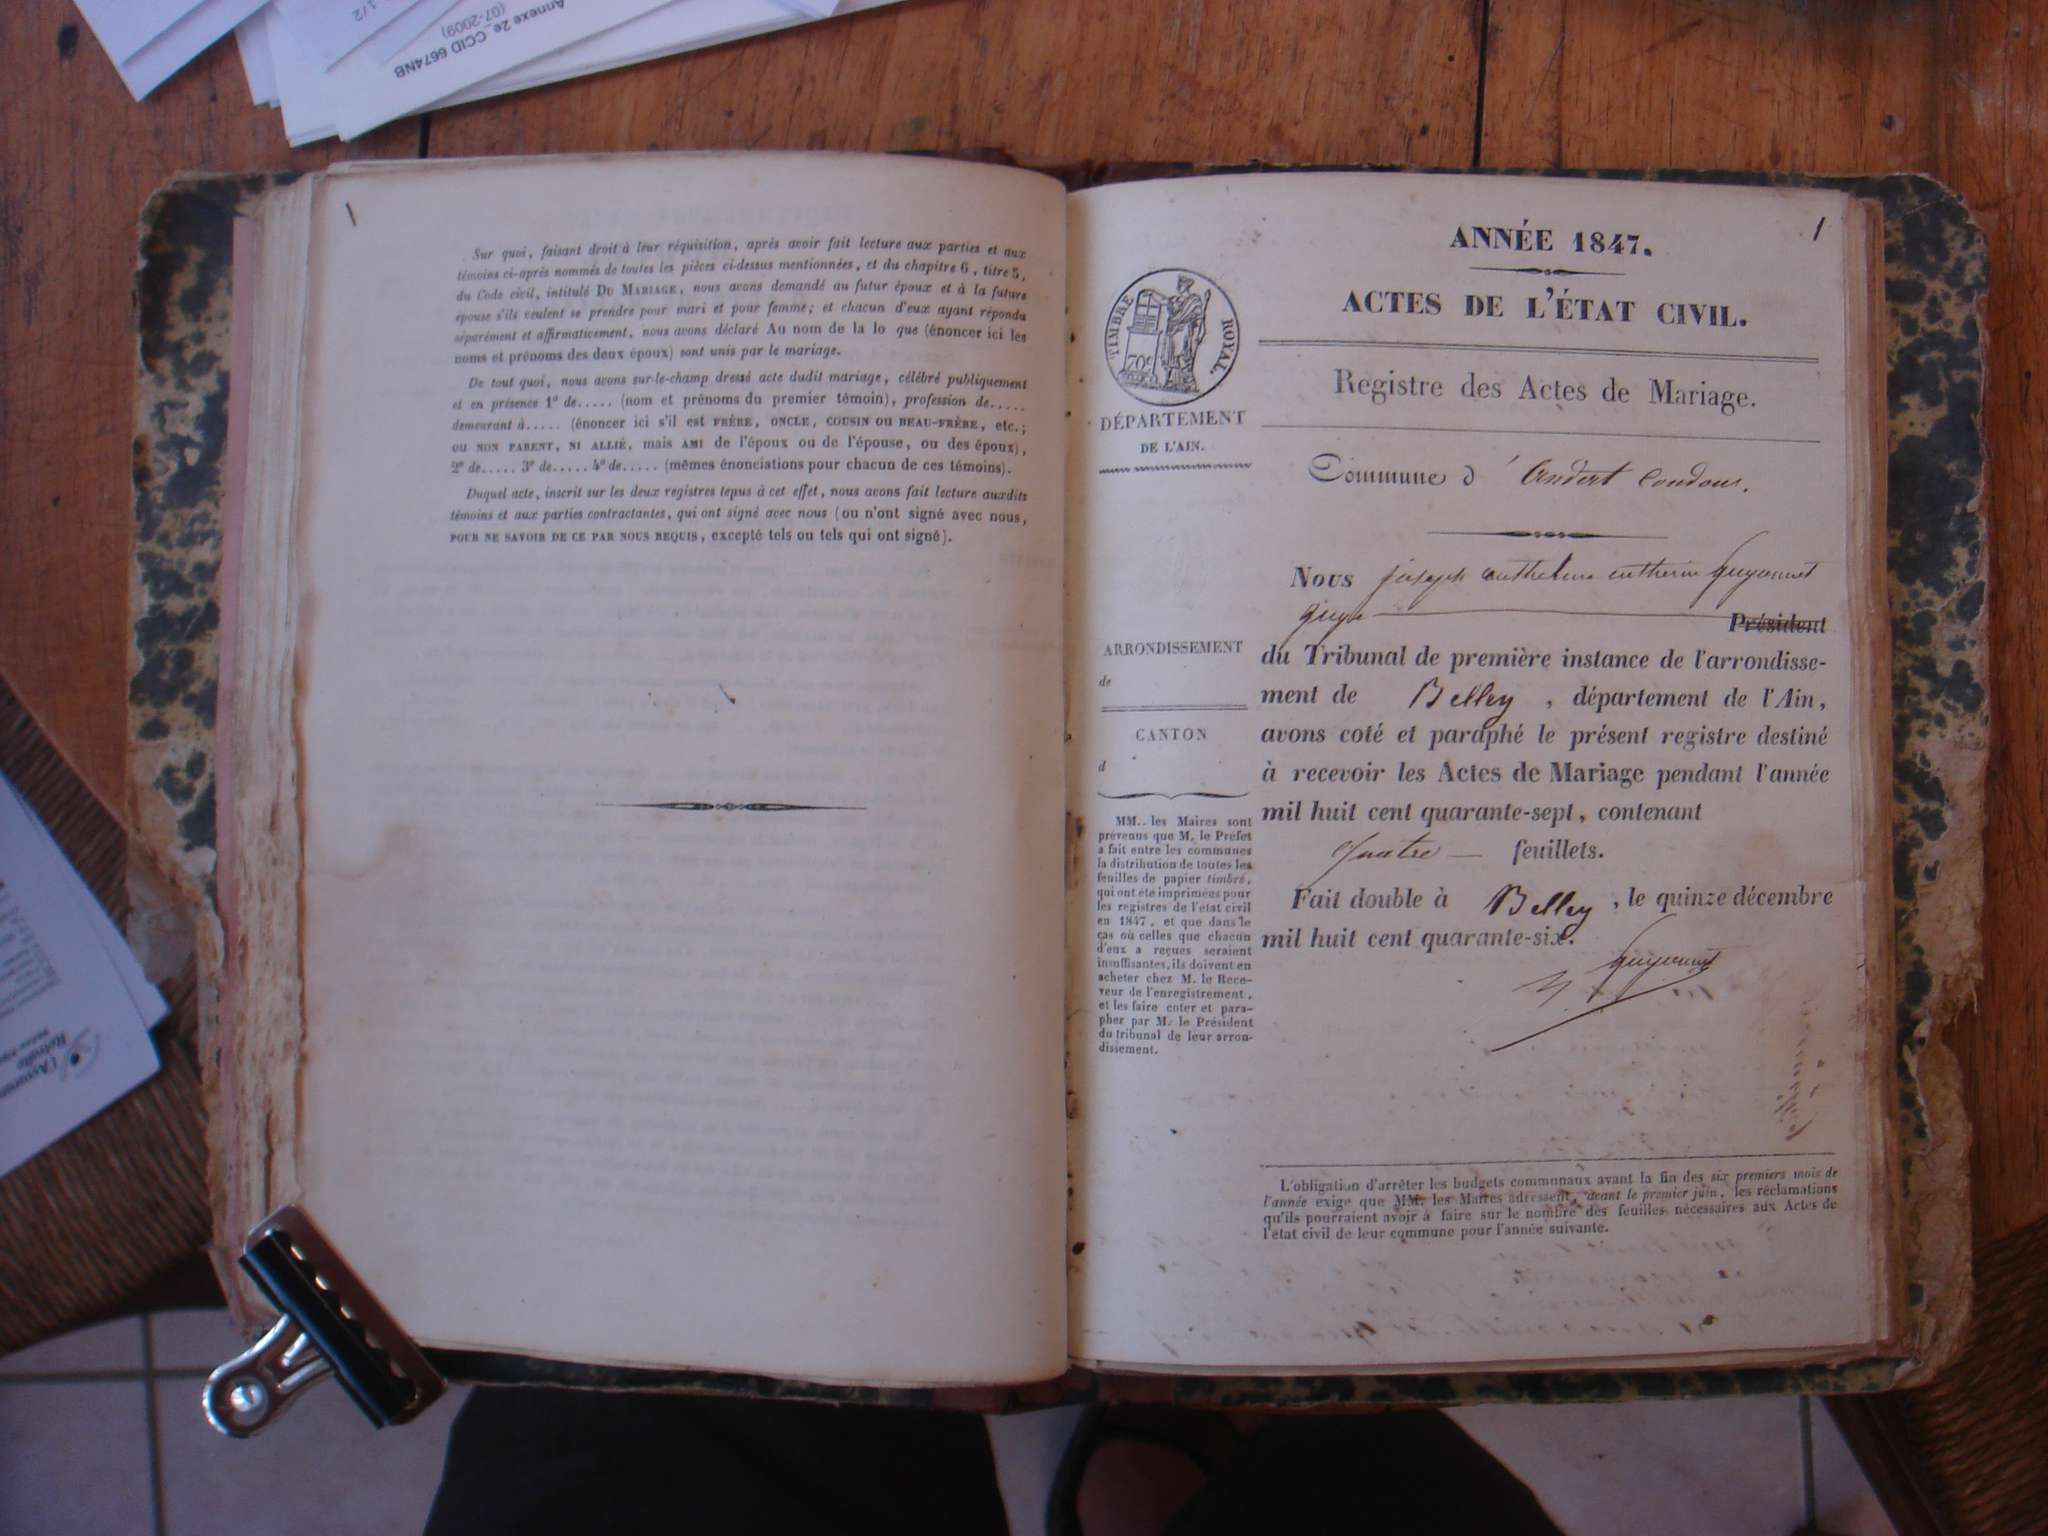 1/2
Annexe 2e_CCID 6674NB
(07-2009)
Sur quoi, faisant droit à leur réquisition, après avoir fait lecture aux parties et aux
témoins ci-après nommés de toutes les pièces ci-dessus mentionnées, et du chapitre 6, titre 5,
du Code civil, intitulé DU MARIAGE, nous avons demandé au futur époux et à la future
épouse s'ils veulent se prendre pour mari et pour femme; et chacun d'eux ayant répondu
séparément et affirmativement, nous avons déclaré Au nom de la lo que (énoncer ici les
noms et prénoms des deux époux) sont unis par le mariage.
De tout quoi, nous avons sur-le-champ dressé acte dudit mariage, célébré publiquement
et en présence 1º de..... (nom et prénoms du premier témoin), profession de.....
demeurant à..... (énoncer ici s'il est FRÈRE, ONCLE, COUSIN OU BEAU-FRÈRE, etc.;
OU NON PARENT, NI ALLIÉ, mais AMI de l'époux ou de l'épouse, ou des époux),
2º de..... 3º de..... 4º de..... (mêmes énonciations pour chacun de ces témoins).
Duquel acte, inscrit sur les deux registres tenus à cet effet, nous avons fait lecture auxdits
témoins et aux parties contractantes, qui ont signé avec nous (ou n'ont signé avec nous,
POUR NE SAVOIR DE CE PAR NOUS REQUIS, excepté tels ou tels qui ont signé).
1
ANNÉE 1847.
ACTES DE L'ÉTAT CIVIL.
TIMBRE ROYAL.
70c
DÉPARTEMENT
DE L'AIN.
Registre des Actes de Mariage.
Commune d'Andert Condon.
Nous joseph anthelme catherin Guyonnet
juge Président
du Tribunal de première instance de l'arrondisse-
ment de Belley, département de l'Ain,
avons coté et paraphé le présent registre destiné
à recevoir les Actes de Mariage pendant l'année
mil huit cent quarante-sept, contenant
quatre feuillets.
Fait double à Belley, le quinze décembre
mil huit cent quarante-six.
Guyonnet
ARRONDISSEMENT
de
CANTON
d
MM. les Maires sont
prévenus que M. le Préfet
a fait entre les communes
la distribution de toutes les
feuilles de papier timbré,
qui ont été imprimées pour
les registres de l'état civil
en 1847, et que dans le
cas où celles que chacun
d'eux a reçues seraient
insuffisantes, ils doivent en
acheter chez M. le Rece-
veur de l'enregistrement,
et les faire coter et para-
pher par M. le Président
du tribunal de leur arron-
dissement.
L'obligation d'arrêter les budgets communaux avant la fin des six premiers mois de
l'année exige que MM. les Maires adressent, avant le premier juin, les réclamations
qu'ils pourraient avoir à faire sur le nombre des feuilles nécessaires aux Actes de
l'état civil de leur commune pour l'année suivante.